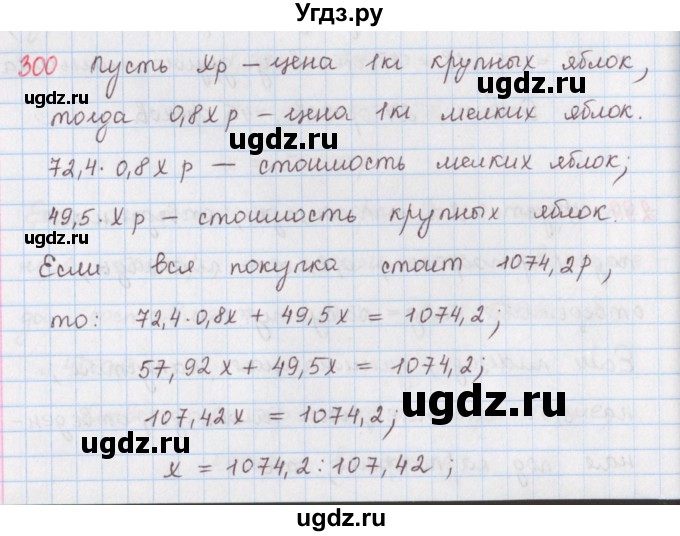 Угдз.ру
300 Пусть Xр – цена 1кг крупных яблок,
тогда 0,8X р – цена 1кг мелких яблок.
72,4 · 0,8X р — стоимость мелких яблок;
49,5 · X р – стоимость крупных яблок.
Если вся покупка стоит 1074,2р,
то: 72,4·0,8x + 49,5x = 1074,2;
57,92x + 49,5x = 1074,2;
107,42x = 1074,2;
x = 1074,2 : 107,42 ;
ugdz.ru
ugdz.ru
ugdz.ru
ugdz.ru
ugdz.ru
ugdz.ru
ugdz.ru
ugdz.ru
ugdz.ru
ugdz.ru
ugdz.ru